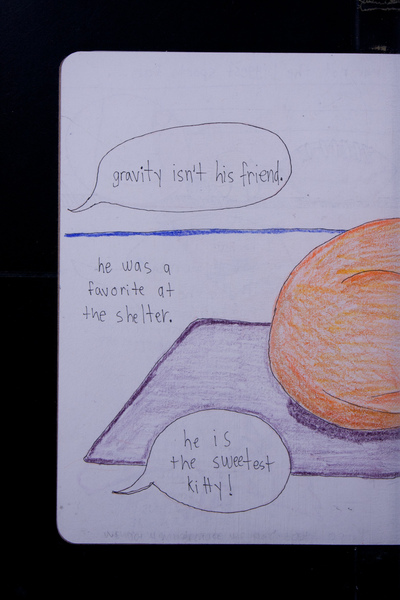 gravity isn't his friend.
he was a
favorite at
the shelter.
he is
the sweetest
kitty!